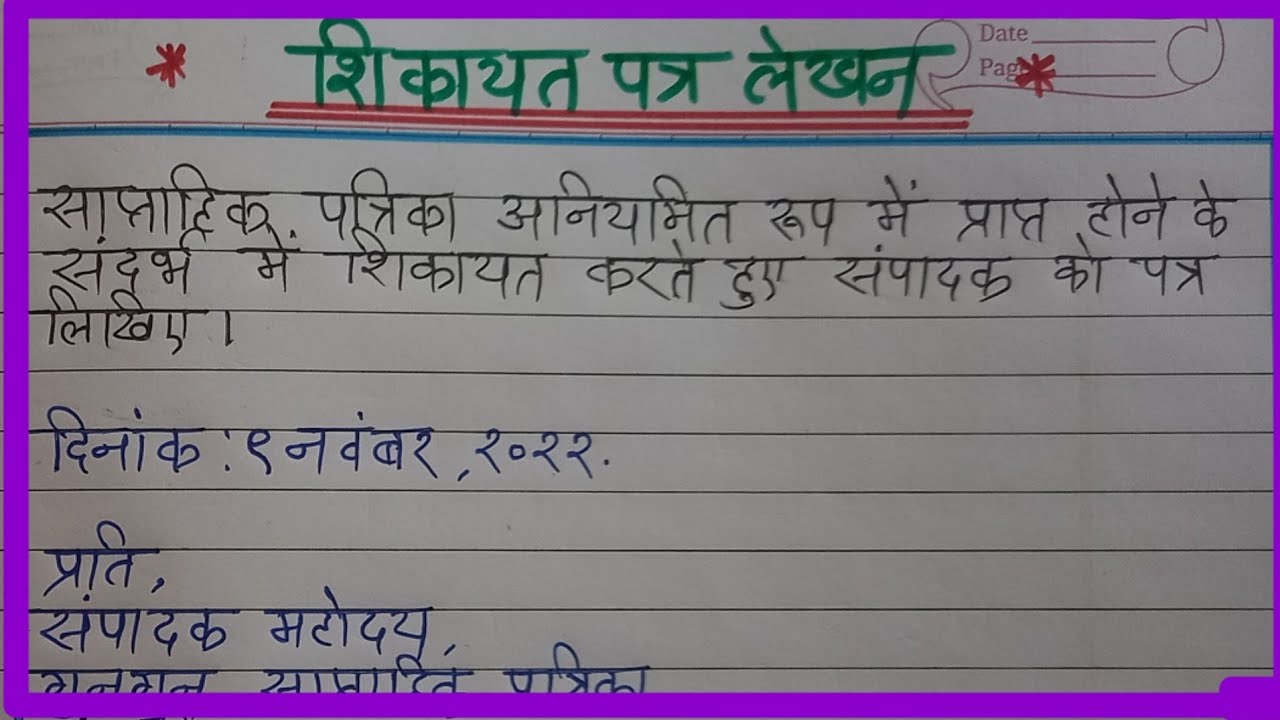 Date
Pag
शिकायत पत्र लेखन
साप्ताहिक पत्रिका अनियमित रूप में प्राप्त होने के
संदर्भ में शिकायत करते हुए संपादक को पत्र
लिखिए।
दिनांक : ९ नवंबर, २०२२.
प्रति,
संपादक महोदय,
पत्रिका